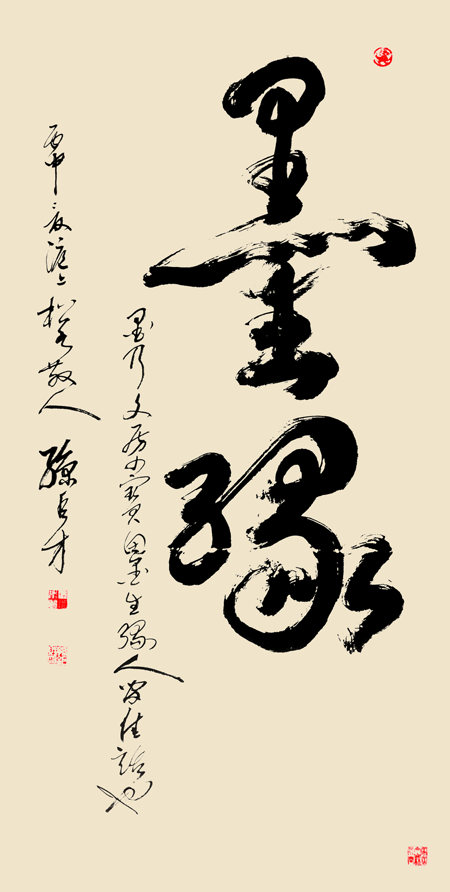 墨緣
墨乃文房四寶因墨生緣人佳話也
丙申滬上松散人孫才